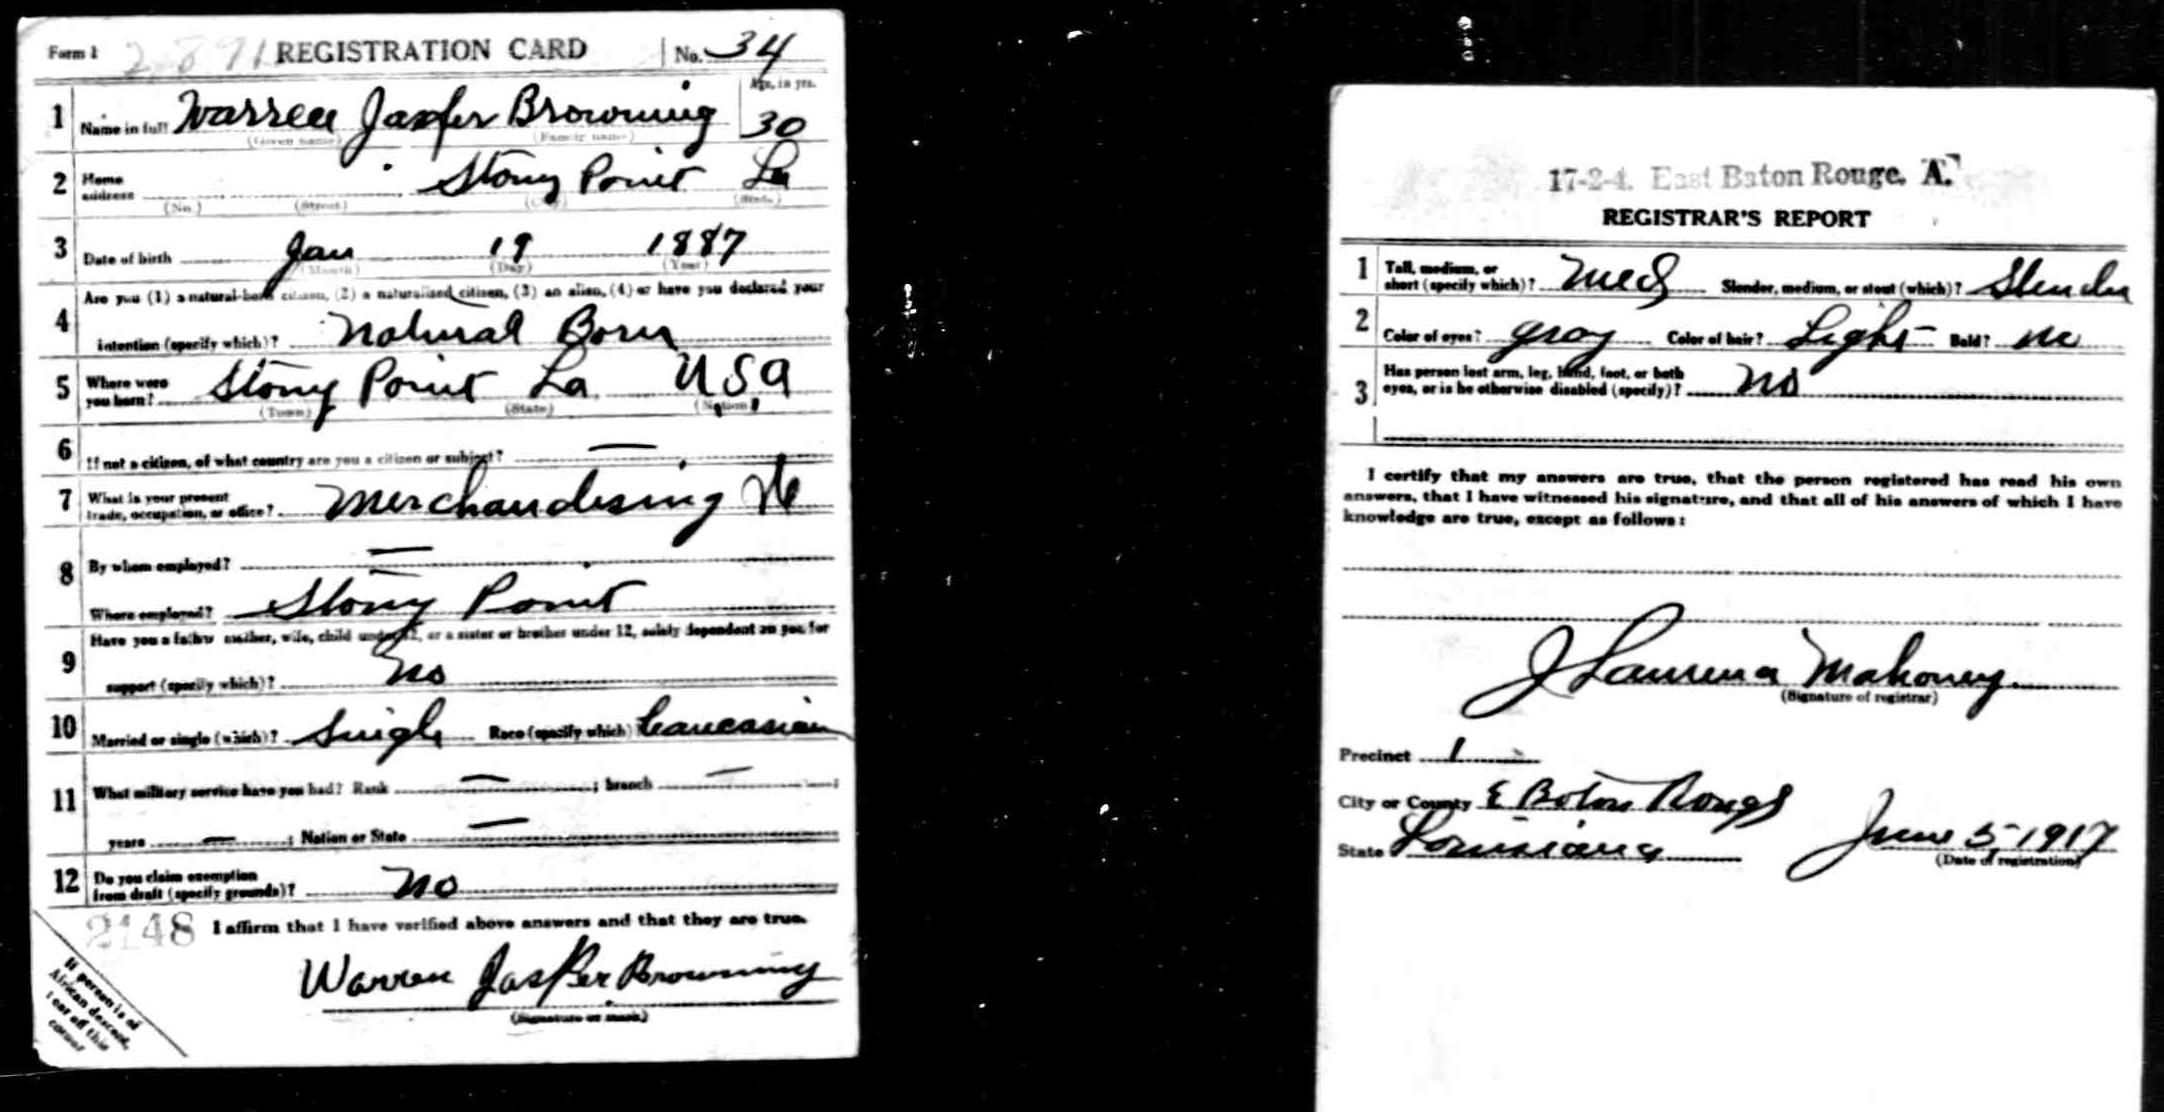 Form 1 2,891 REGISTRATION CARD No. 34
1 Name in full Warren Jasper Browning Age, in yrs. 30
(Given name) (Family name)
2 Home address Stony Point La
(No.) (Street) (City) (State)
3 Date of birth Jan 19 1887
(Month) (Day) (Year)
4 Are you (1) a natural-born citizen, (2) a naturalized citizen, (3) an alien, (4) or have you declared your
intention (specify which)? Natural Born
5 Where were you born? Stony Point La U.S.A
(Town) (State) (Nation)
6 If not a citizen, of what country are you a citizen or subject? —
7 What is your present trade, occupation, or office? Merchandising
8 By whom employed? —
Where employed? Stony Point
9 Have you a father, mother, wife, child under 12, or a sister or brother under 12, solely dependent on you for
support (specify which)? No
10 Married or single (which)? Single Race (specify which) Caucasian
11 What military service have you had? Rank — ; branch — ;
years — ; Nation or State —
12 Do you claim exemption from draft (specify grounds)? No
2148 I affirm that I have verified above answers and that they are true.
Warren Jasper Browning
(Signature or mark)
If person is of
African descent,
tear off this
corner
17-2-4. East Baton Rouge. A.
REGISTRAR'S REPORT
1 Tall, medium, or short (specify which)? Med Slender, medium, or stout (which)? Slender
2 Color of eyes? gray Color of hair? Light Bald? no
3 Has person lost arm, leg, hand, foot, or both
eyes, or is he otherwise disabled (specify)? No
I certify that my answers are true, that the person registered has read his own
answers, that I have witnessed his signature, and that all of his answers of which I have
knowledge are true, except as follows:
J Laurena Mahoney
(Signature of registrar)
Precinct 1
City or County E Baton Rouge
State Louisiana June 5, 1917
(Date of registration)